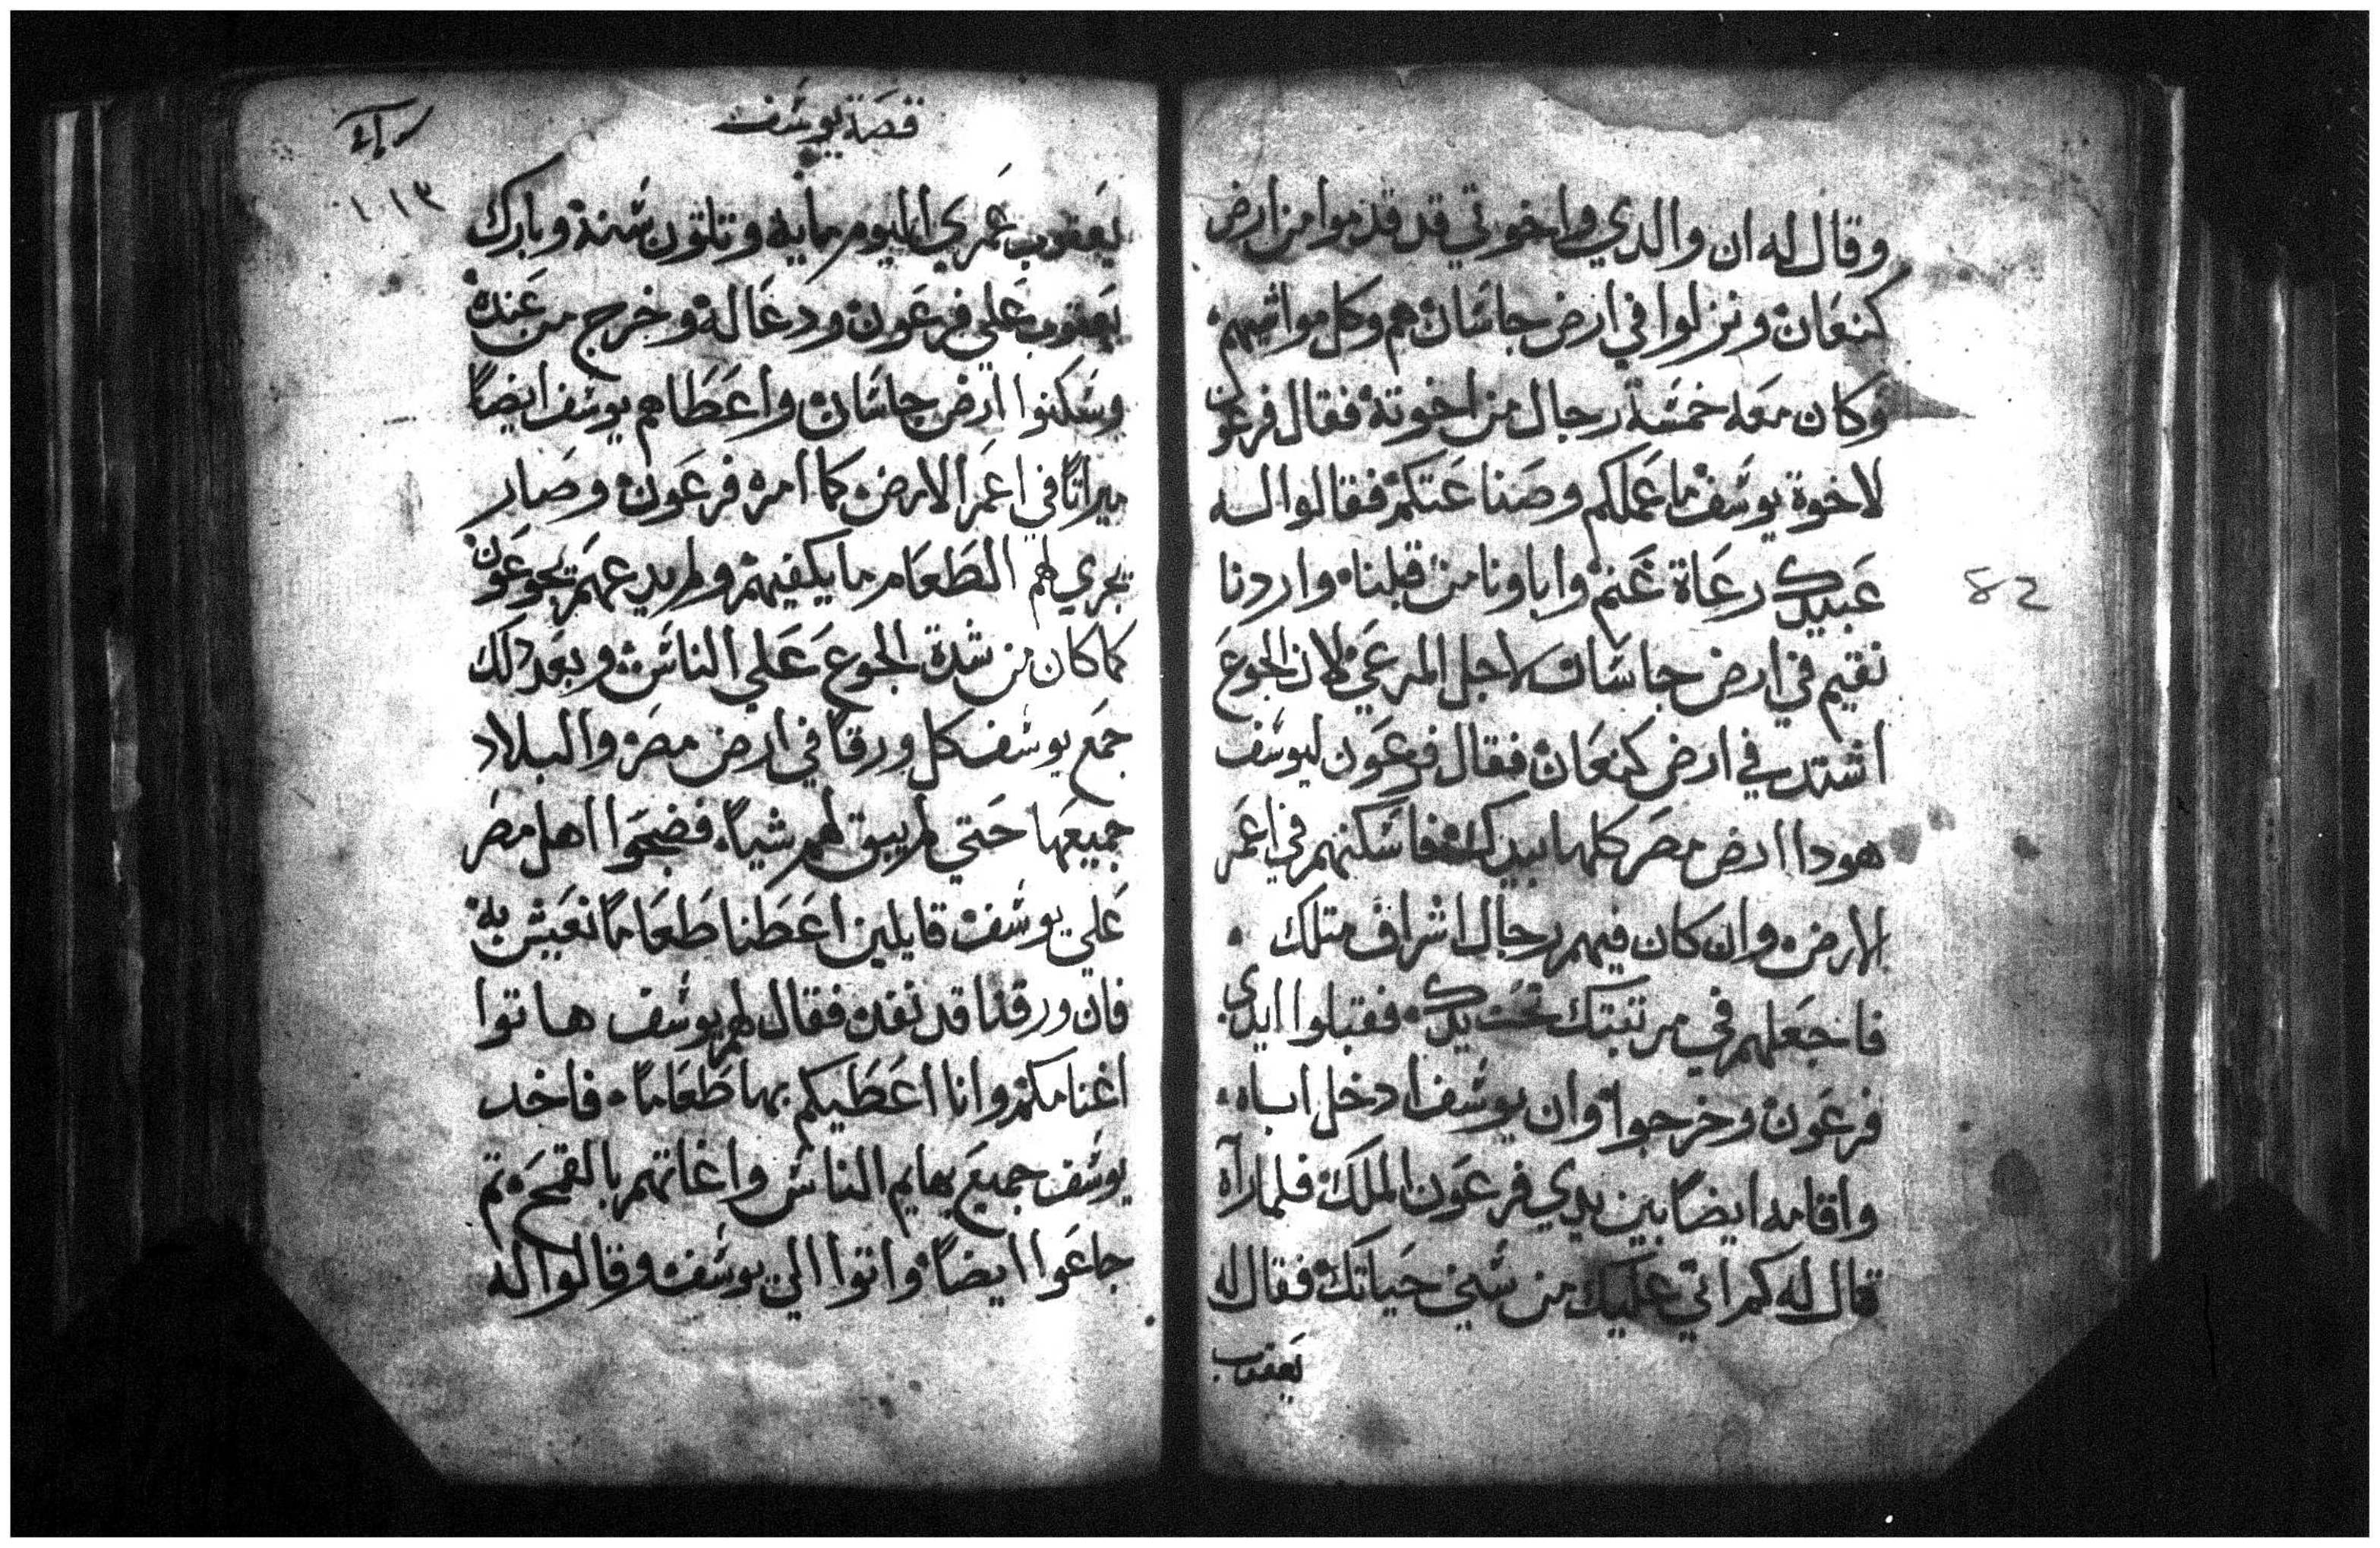 وقال له ان والدي واخوتي قد قدموا من ارض
كنعان ونزلوا في ارض جاسان هم وكل مواشيهم
وكان معه خمسة رجال من اخوته فقال فرعون
لاخوة يوسف ما عملكم وصناعتكم فقالوا له
عبيدك رعاة غنم واباونا من قبلنا واردنا
نقيم في ارض جاسان لاجل المرعي لان الجوع
اشتد في ارض كنعان فقال فرعون ليوسف
هودا ارض مصر كلها بيدك فاسكنهم في اعمر
الارض وان كان فيهم رجال اشراف متلك
فاجعلهم في مرتبتك تحت يدك فقبلوا ايدي
فرعون وخرجوا وان يوسف ادخل اباه
واقامه ايضاً بين يدي فرعون الملك فلما رآه
قال له كم اتي عليك من سني حياتك فقال له
يعقوب
82
قصة يوسف
١١٣
يعقوب عمري اليوم مايه وتلتون سنة وبارك
يعقوب علي فرعون ودعا له وخرج من عنده
وسكنوا ارض جاسان واعطاهم يوسف ايضاً
ميراتاً في اعمر الارض كما امره فرعون وصار
يجري لهم الطعام ما يكفيهم ولم يدعهم يجوعون
كما كان من شدة الجوع علي الناس وبعد دلك
جمع يوسف كل ورقاً في ارض مصر والبلاد
جميعها حتي لم يبق لهم شياً فضجوا اهل مصر
علي يوسف قايلين اعطنا طعاماً نعيش به
فان ورقنا قد نفد فقال لهم يوسف هاتوا
اغنامكم وانا اعطيكم بها طعاماً فاخد
يوسف جميع بهايم الناس واغاتهم بالقمح تم
جاعوا ايضاً واتوا الي يوسف وقالوا له